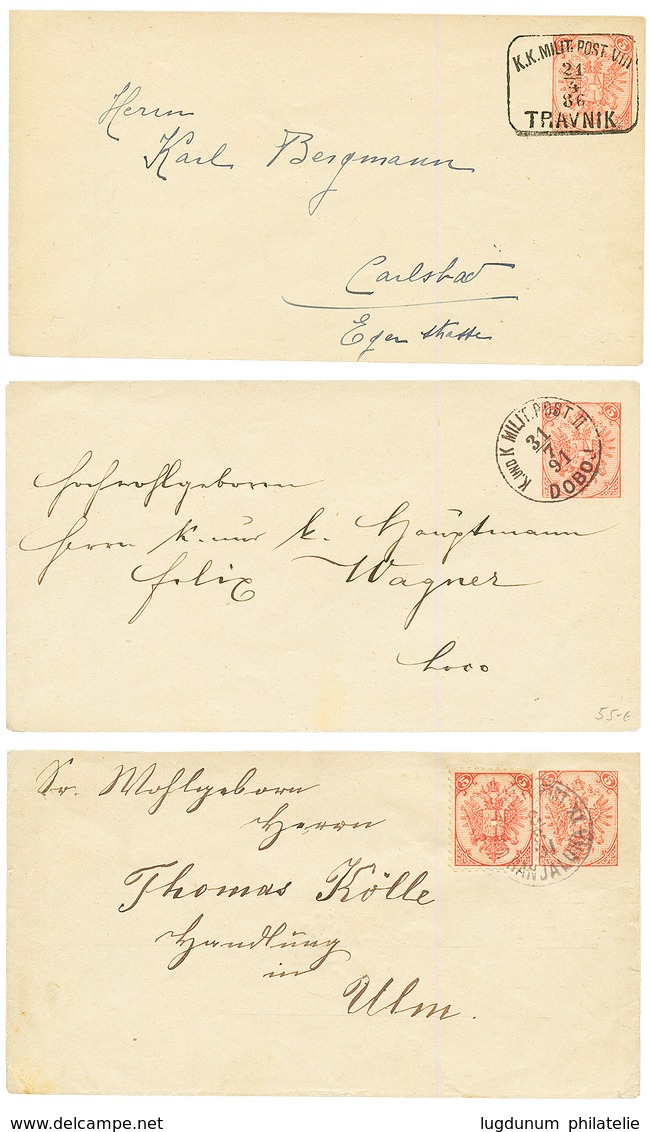 K.K. MILIT. POST. VIII
21
4
86
TRAVNIK
5
Herrn
Karl Bergmann
Carlsbad
Eger strasse
5 5
K. UND K MILIT. POST. II
31
7
91
DOBOJ
Hochwohlgeboren
Herrn K. und k. Hauptmann
Felix Wagner
Loco
55-€
5 5
5 5
BANJALUKA
Sr. Wohlgeborn
Herrn
Thomas Kölle
Handlung
in
Ulm.
www.delcampe.net
lugdunum philatelie